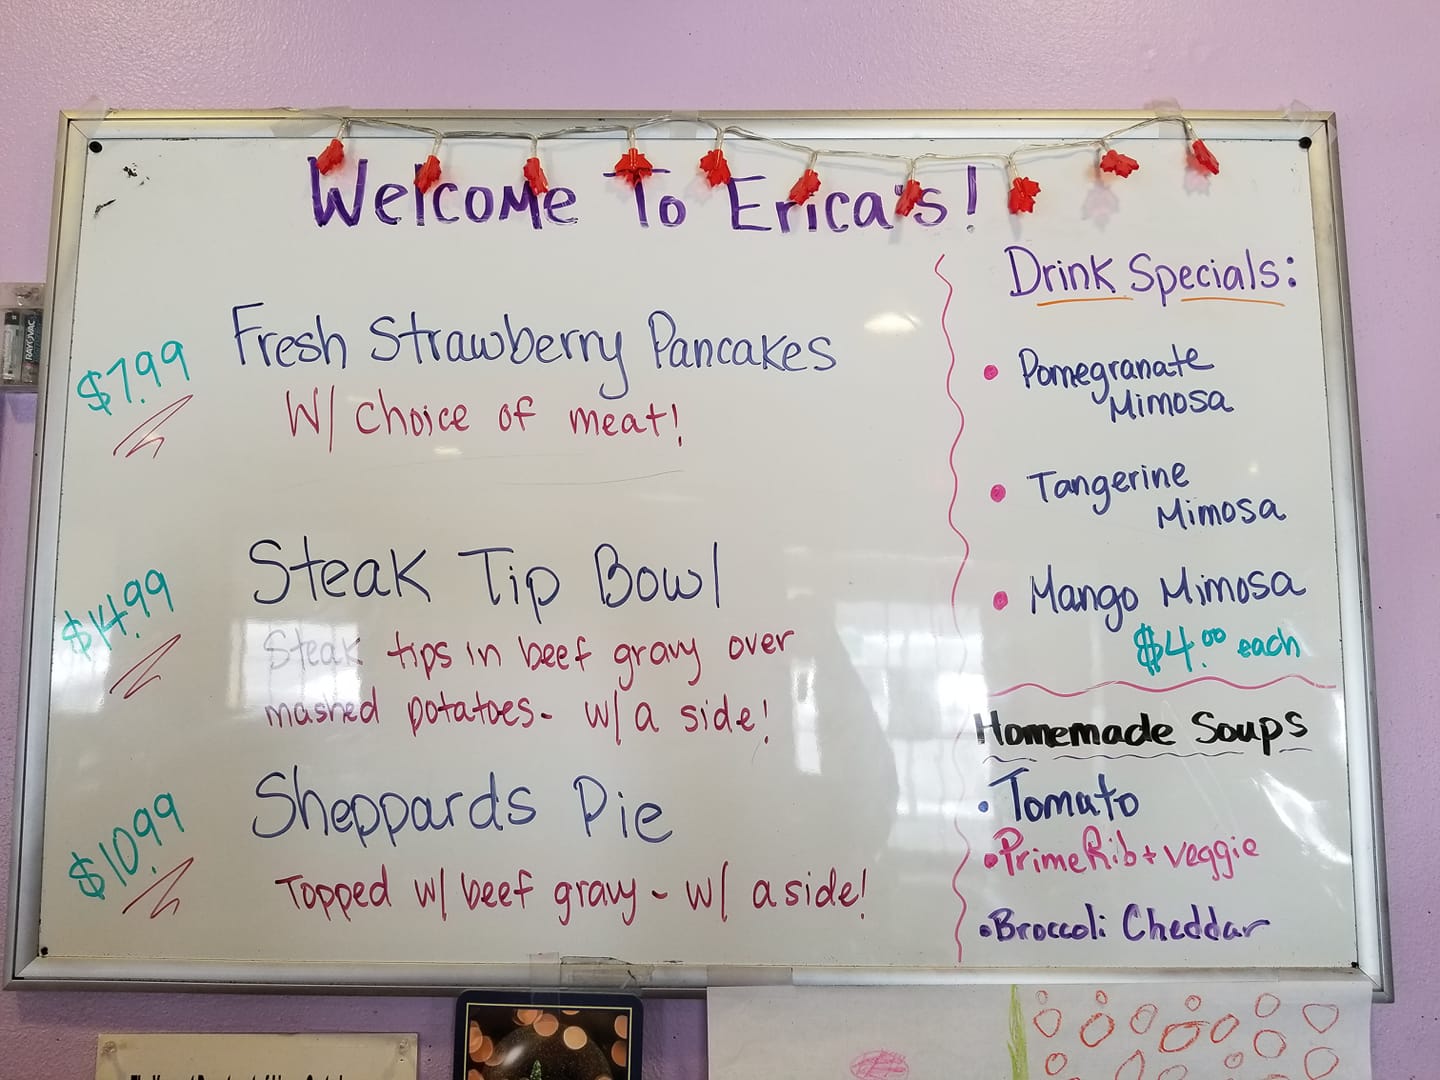 Welcome To Erica's!
$7.99
Fresh Strawberry Pancakes
W/ choice of meat!
$14.99
Steak Tip Bowl
Steak tips in beef gravy over
mashed potatoes - w/ a side!
$10.99
Sheppards Pie
Topped w/ beef gravy - w/ a side!
Drink Specials:
• Pomegranate
Mimosa
• Tangerine
Mimosa
• Mango Mimosa
$4.00 each
Homemade Soups
• Tomato
• Prime Rib + veggie
• Broccoli Cheddar
RAYOVAC